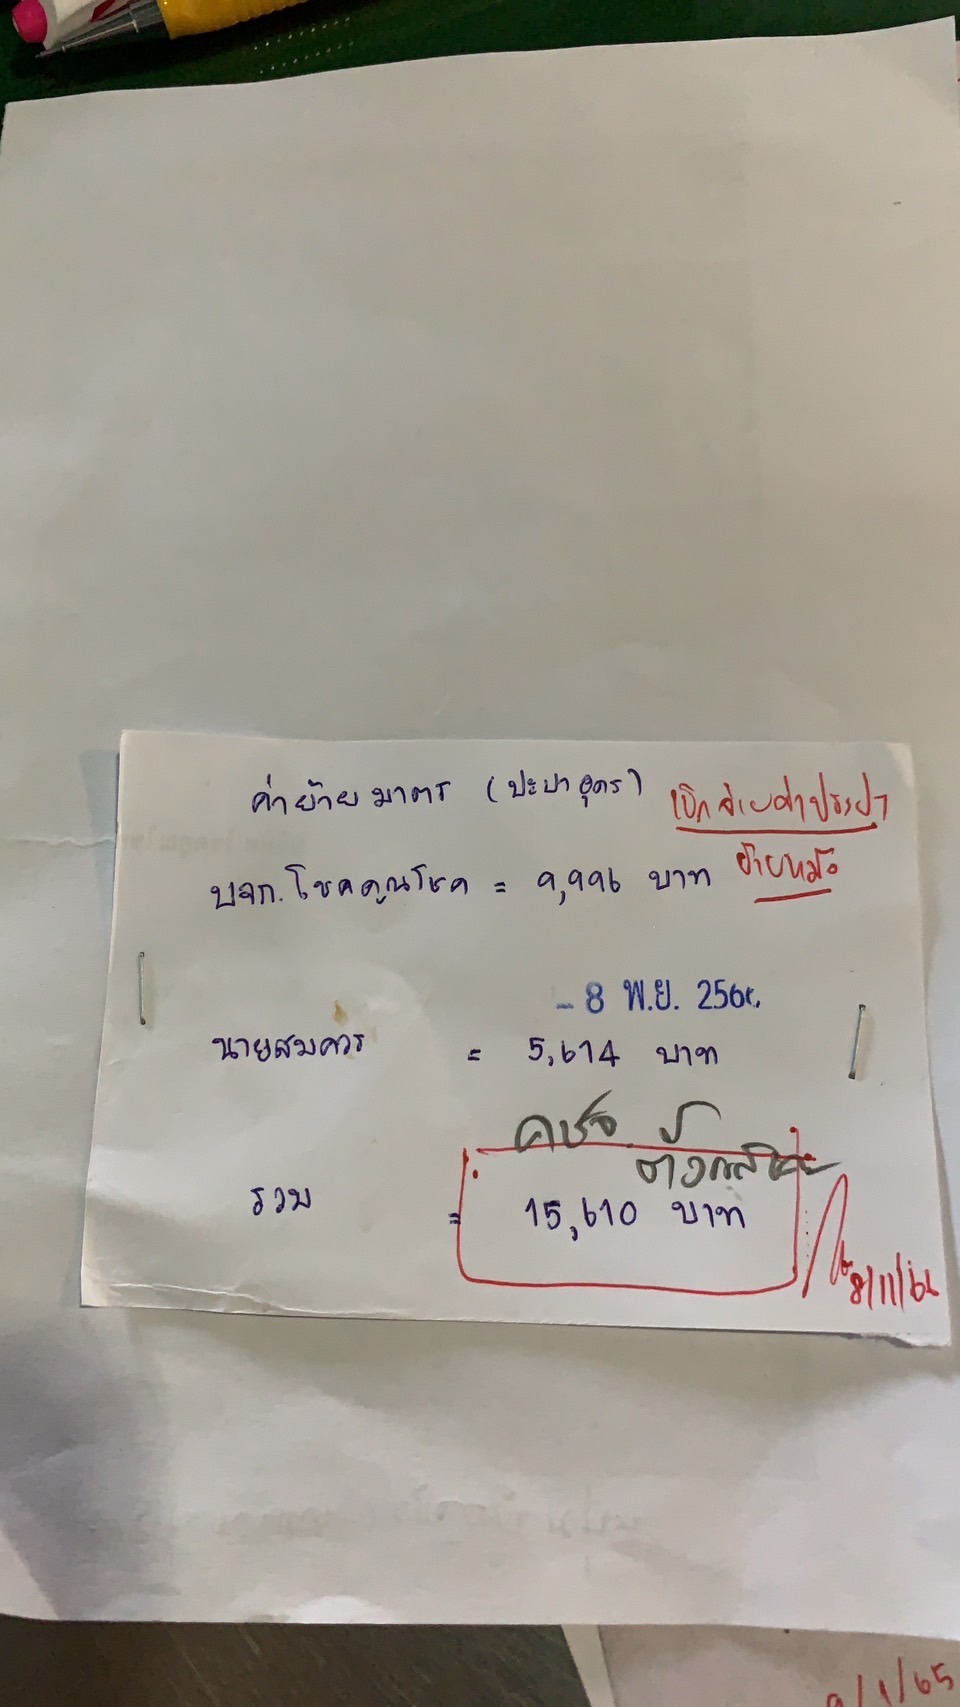 ค่าย้ายมาตร (ปะปาอุดร)
เบิกจ่ายค่าประปา
ย้ายหม้อ
บจก. โชคคูณโชค = 9,996 บาท
- 8 พ.ย. 256
นายสมควร = 5,614 บาท
คชจ
รวม = 15,610 บาท
8/11/6
9/1/65